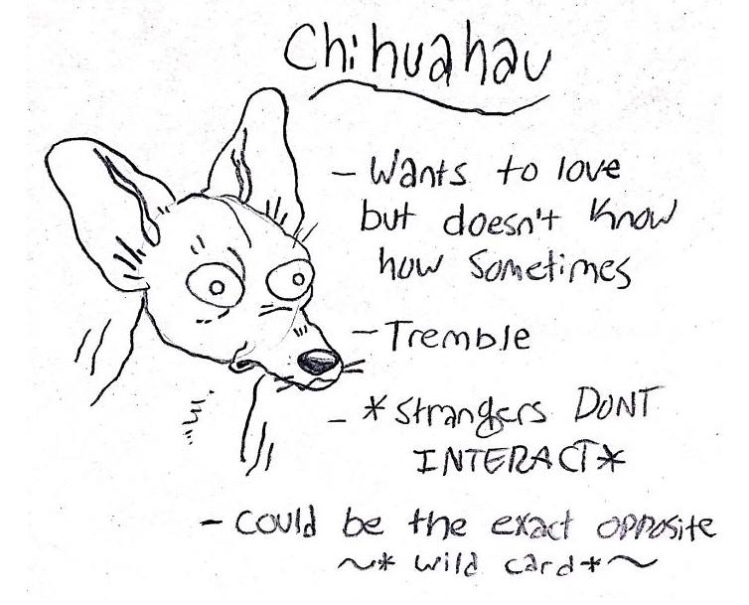 Chihuahau
- Wants to love
but doesn't know
how sometimes
- Tremble
- *strangers DONT
INTERACT*
- could be the exact opposite
~* wild card*~